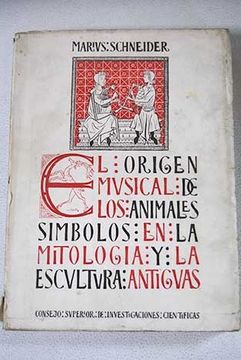 MARIVS: SCHNEIDER
EL: ORIGEN
MVSICAL: DE
LOS: ANIMALES
SIMBOLOS: EN: LA
MITOLOGIA: Y: LA
ESCVLTVRA: ANTIGVAS
CONSEJO: SVPERIOR: DE: INVESTIGACIONES: CIENTIFICAS